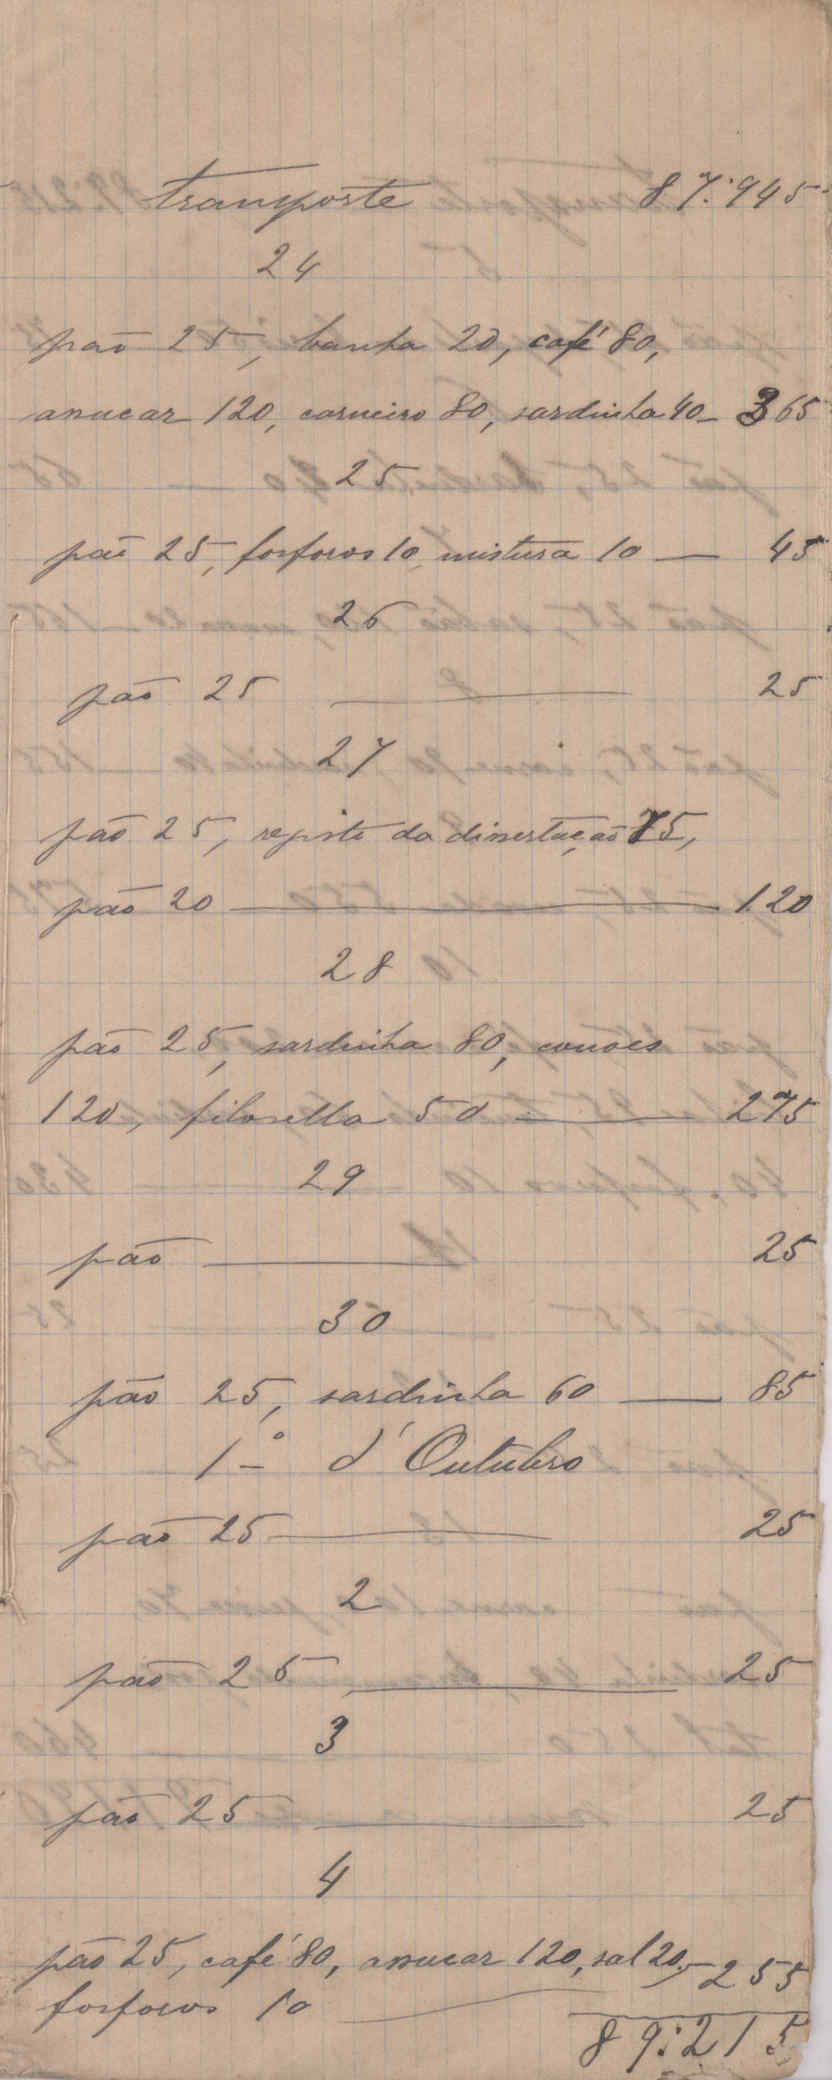 transporte 87:945
24
pão 25, banha 20, café 80,
assucar 120, carneiro 80, sardinha 40 - 365
25
pão 25, fosforos 10, mistura 10 — 45
26
pão 25 — 25
27
pão 25, registo da dissertação 75,
pão 20 — 120
28
pão 25, sardinha 80, couves
120, filosella 50 — 275
29
pão — 25
30
pão 25, sardinha 60 — 85
1º d'Outubro
pão 25 — 25
2
pão 25 — 25
3
pão 25 — 25
4
pão 25, café 80, assucar 120, sal 20, - 255
fosforos 10 —
89:215